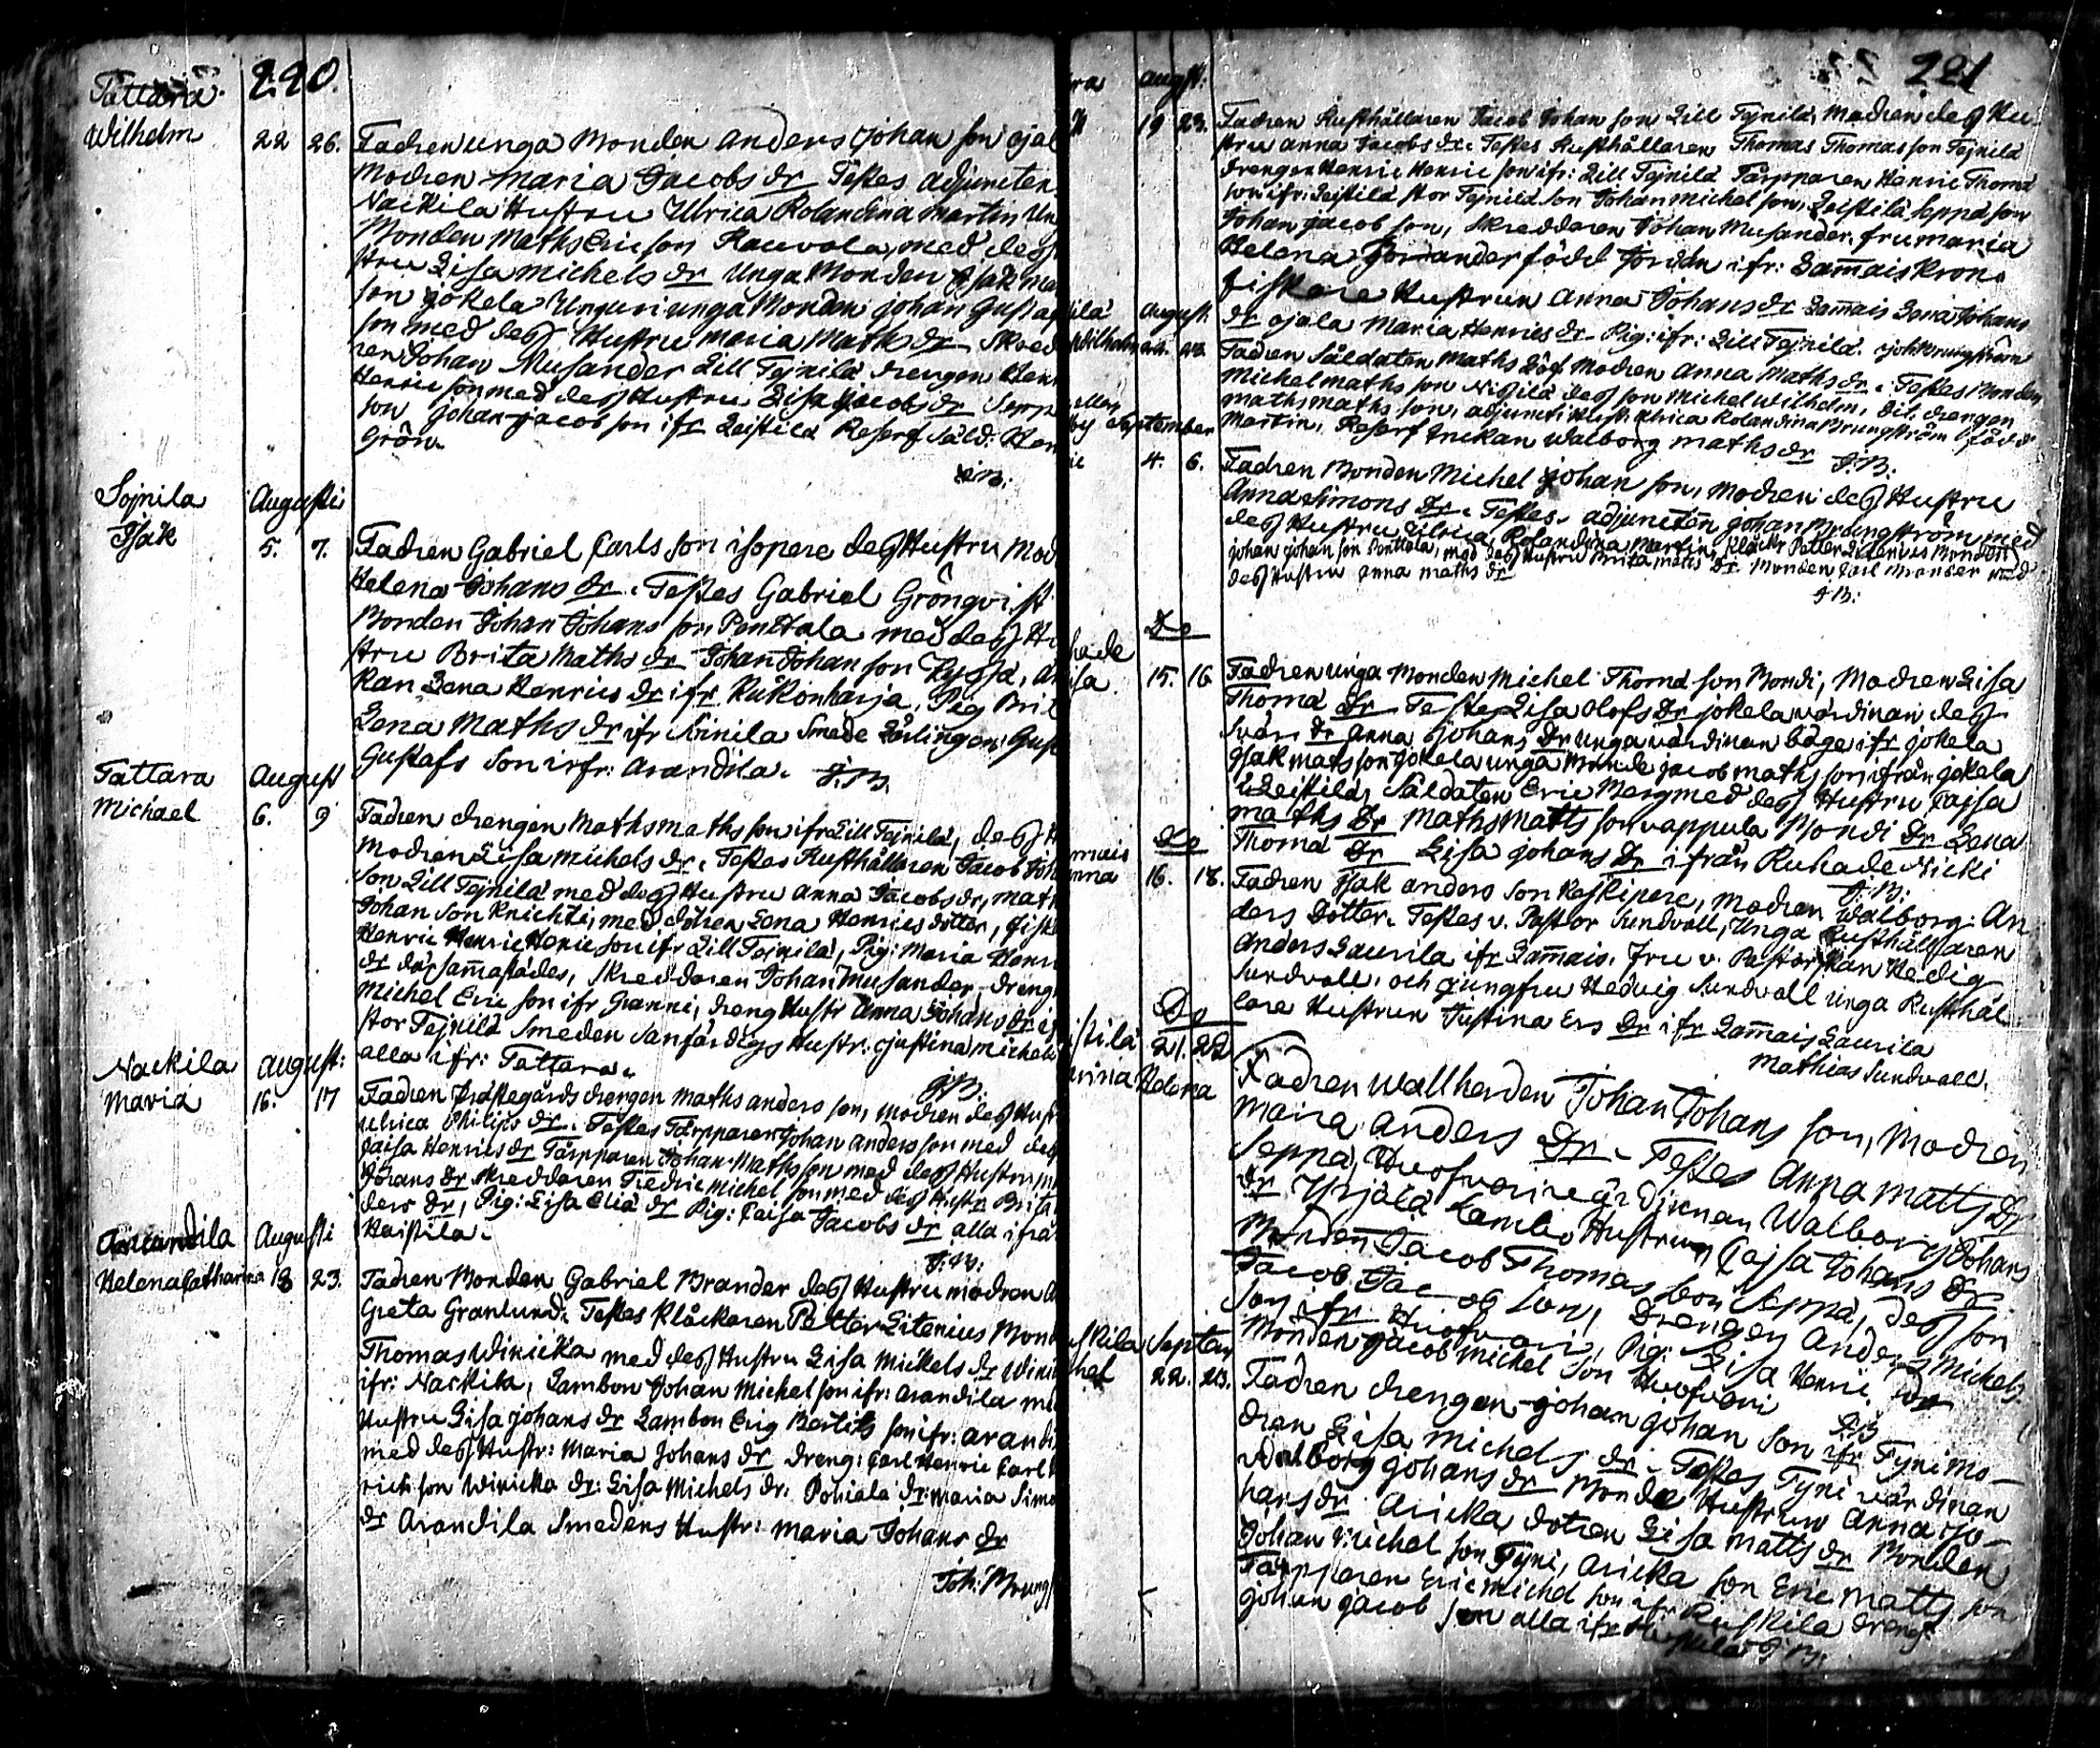 220.
Tattara
Wilhelm 22 26. Fadren unga Bonden Anders Johan son ojal
Modren Maria Jacobs dr Testes adjuncten
Nackila Hustru Ulrica Rolandina Martin Un
Bonden Maths Eric son Kauvola, med dess
stru Lisa Michels dr Unga Bonden Isak Ma
son jokela Unguri unga Bonden Johan Gustaf
son med dess Hustru Maria Maths dr Skred
ren Johan Musander Lill Tejnilä drengen Hen
Henric son med dess Hustru Lisa Jacobs dr Sepp
son Johan Jacob son ifr Leistilä Reserf Såld: Hen
Grön.
J:B:
Sojnila Augusti
Isak 5. 7. Fadren Gabriel Carls son isopere dess Hustru Mod
Helena Johans dr. Testes Gabriel Grönqvist
Bonden Johan Johans son Penttala med dess Hu
stru Brita Maths dr Johan Johan son
kan Lena Henrics dr ifr Kukonharja, Pig Brit
Lena Maths dr ifr Sinila Smeds Lärlingen Gust
Gustafs son ifr: Arandila. J:B.
Tattara August
Michael 6. 9 Fadren drengen Maths Maths son ifr Lill Tejnilä, dess H
Modren Lisa Michels dr. Testes Rusthållaren Jacob Joh
son Lill Tejnilä med dess Hustru Anna Jacobs dr, Math
Johan son Knichti, med dotren Lena Henrics dotter,
Henric Henric Henric son ifr Lill Tejnilä, Pig: Maria Henr
dr därsammastädes, Skreddaren Johan Musander, dreng
Michel Eric son ifr Granni, dreng Hustr Anna Johans dr if
stor Tejnilä Smeden Sanfärdigs Hustr: Justina Michels
alla ifr: Tattara.
J:B.
Nackila August:
Maria 16. 17 Fadren Prästegårds drengen Maths Anders son, Modren dess Hust
Ulrica Philips dr. Testes Torpparen Johan Anders son med dess
Caisa Henrics dr Torpparen Johan Maths son med dess Hustru M
Johans dr Skreddaren Fredric Michel son med dess Hustr Brita
ders dr, Pig: Lisa Eliä dr Pig: Caisa Jacobs dr alla ifrå
Haistila.
J:B:
Arandila Augusti
Helena Catharina 18 23. Fadren Bonden Gabriel Brander dess Hustru modren A
Greta Granlund. Testes Klåckaren Petter Litenius Bond
Thomas Winicka med dess Hustru Lisa Mickels dr Wini
ifr: Nackila, Lambon Johan Michel son ifr: Arandila me
Hustru Lisa Johans dr Lambon Erig Bertils son ifr: Arandi
med dess Hustr: Maria Johans dr dreng: Carl Henric Carl
rich son Winicka dr: Lisa Michels dr. Pohiala dr: Maria Simo
dr Arandila Smedens Hustr: Maria Johans dr
Joh: Brung
221
ra August:
19 23. Fadren Rusthållaren Jacob Johan son Lill Tejnilä, Modren dess Hu
stru Anna Jacobs dr. Testes Rusthållaren Thomas Thomas son Tejnilä
drengen Henric Henric son ifr: Lill Tejnilä Torpparen Henric Thoma
son ifr: Leistilä stor Tejnilä son Johan Michel son, Leistilä Seppä son
Johan Jacob son, Skreddaren Johan Musander, fru Maria
Helena född Jordan ifr: Lammais Krono
fiskare Hustrun Anna Johans dr Lammais Lena Johans
dr ojala Maria Henrics dr Pig: ifr: Lill Tejnilä. Joh Brungström
ilä August:
Wilhelm Fadren Såldaten Maths Löf Modren Anna Maths dr. Testes Bonden
Michel Maths son dess son Michel Wilhelm, dit: drengen
Maths Maths son, adjuncti Hustr Ulrica Rolandina Brungström född
Martin, Reserf Enckan Walborg Maths dr J:B.
September
4. 6. Fadren Bonden Michel Johan son, Modren dess Hustru
Anna Simons Dr. Testes. adjuncten Johan Brungström med
dess Hustru Ulrica Rolandina Martin, Klåckr Petter Litenius Bonden
Johan Johan son Penttala, med dess Hustru Brita Maths Dr. Bonden Carl Brander med
dess Hustru Anna Maths dr
J:B:
Do
15. 16 Fadren unga Bonden Michel Thoma son Bondi, Modren Lisa
Thoma Dr Testes Lisa Olofs Dr jokela värdinan dess
Svär. dr Anna Johans Dr unga värdinan båge ifr jokela
Isak Mats son Jokela unga Bonde Jacob Maths son ifrån jokela
Leistilä, Såldaten Eric Berg med dess Hustru Cajsa
Maths Dr Maths Matts son vappula Bondi Dr Lena
Thoma Dr Lisa Johans Dr ifrån Ruhade Nicki
J:B:
mais Do
nna 16. 18. Fadren Isak Anders son Koskipere, Modren Walborg An
ders Dotter. Testes v. Pastor Sundvall, Unga Rusthållaren
Anders Laurila ifr Lammais. Fru v. Pastorskan Hedig
Sundvall, och jungfru Hedvig Sundvall unga Rusthål
lare Hustrun Justina Ers Dr ifr Lammais Laurila
Mathias Sundvall.
Do
istilä 21. 22
rina Helena Fadren Wallherden Johan Johans son, Modren
Maria Anders Dr. Testes Anna Matts Dr
Seppä, Huofvari värdinnan Walborg Johans
dr Yrjälä Lambo Hustrun Cajsa Johans Dr
Bonden Jacob Thomas son Seppä, dess son
Jacob Jacob son, Drengen Anders Michels
son ifr Huofvari, Pig: Lisa Henric dr
Bonden Jacob Michel son Huofvari
J:B
skila Septem
22. 23. Fadren drengen Johan Johan son ifr Tyni Mo-
dren Lisa Michels dr. Testes Tyni värdinan
Walborg Johans dr Bonde Hustrun Anna Jo-
hans dr Aricka dotren Lisa Matts dr Bonden
Johan Michel son Tyni, Aricka son Eric Matts son
Torpparen Eric Michel son ifr Ruskila dreng:
Johan Jacob son alla ifr Ruskila J:B: